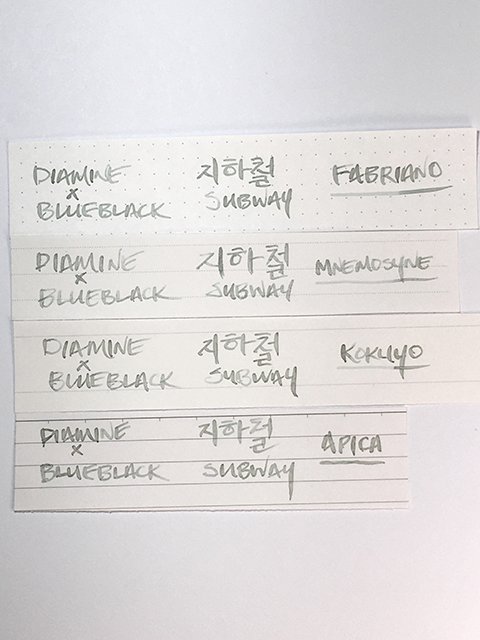 DIAMINE 지하철 FABRIANO
x
BLUEBLACK SUBWAY
DIAMINE 지하철 MNEMOSYNE
x
BLUEBLACK SUBWAY
DIAMINE 지하철 KOKUYO
x
BLUEBLACK SUBWAY
DIAMINE 지하철 APICA
x
BLUEBLACK SUBWAY